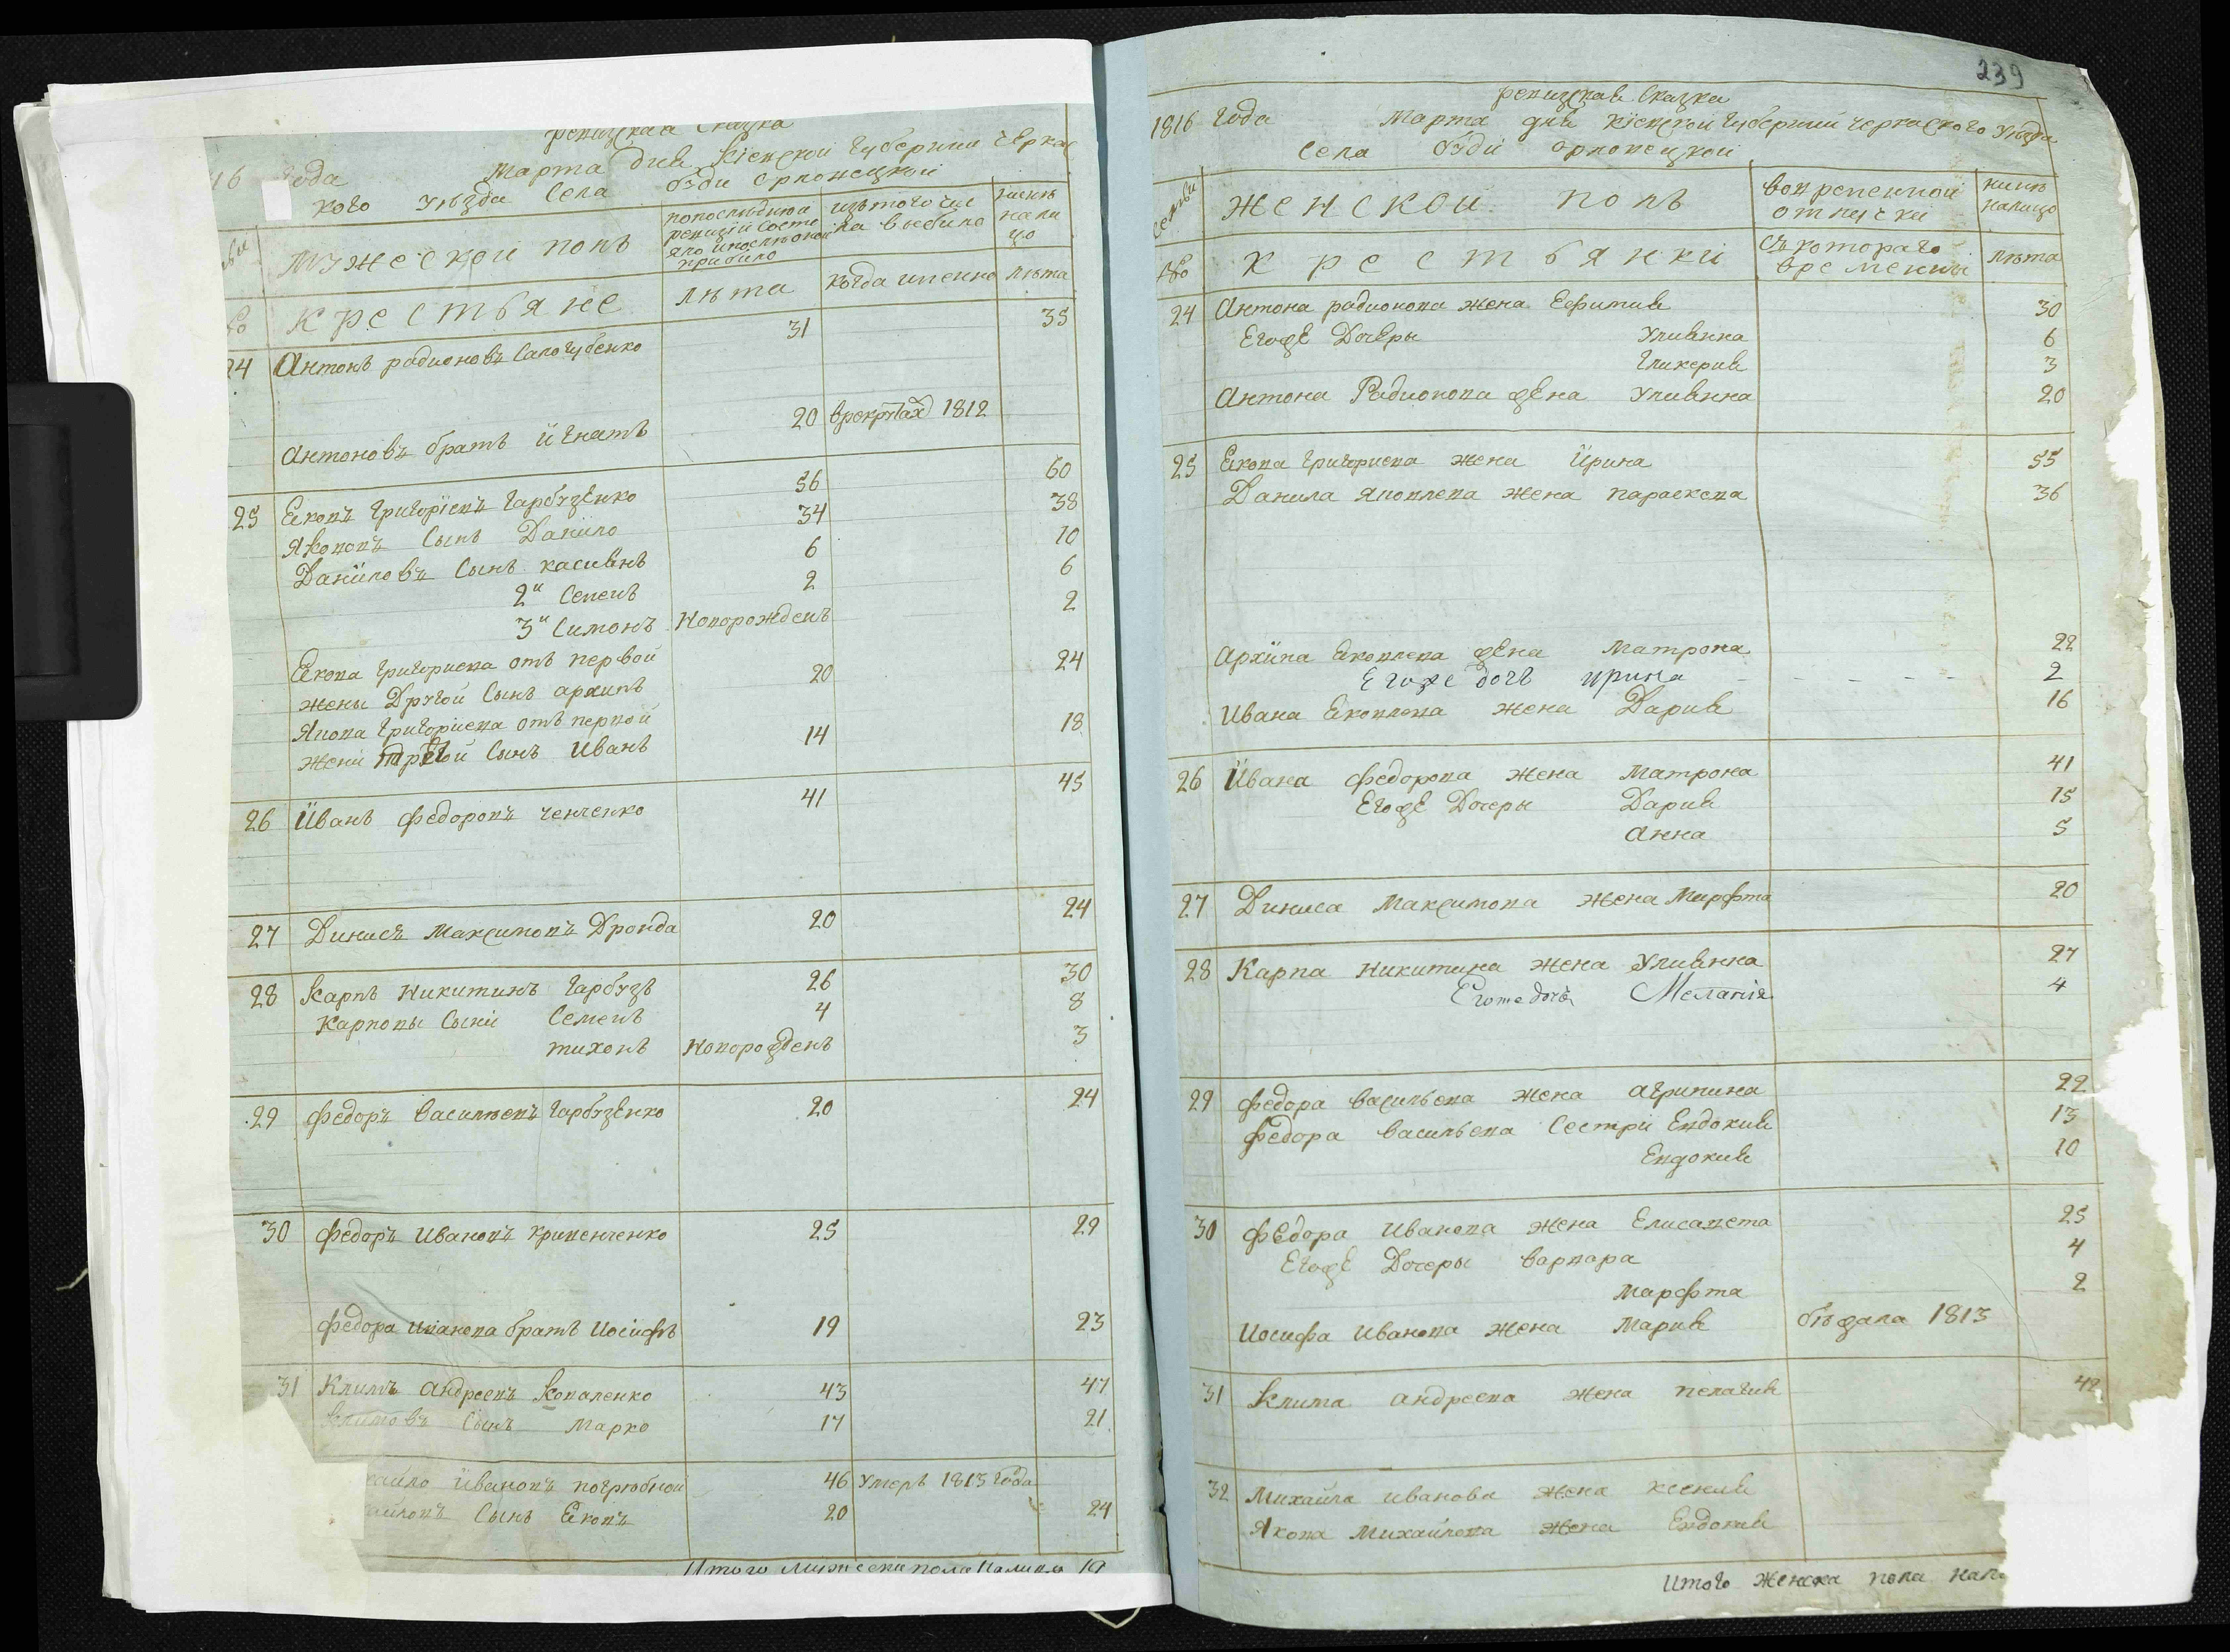 ревизская сказка
16 года Марта дня Кіевской Губерніи Черкас
кого уезда села бузди орловецкой
мужеской полъ
по последней ревизіи состояло и после оной прибыло
изъ того числа выбыло
ныне на лицо
№ крестьяне
лета
когда именно
лета
24 Антонъ радионовъ Сологубенко 31 35
Антоновъ братъ Игнатъ 20 врекрутах 1812
25 Яковъ Григоріевъ Гарбузенко 56 60
Яковов Сынъ Данило 34 38
Даниловъ Сынъ касиянъ 6 10
2й Семенъ 2 6
3й Симонъ Новорожденъ 2
Якова Григориева отъ первой
жены Другой Сынъ архипъ 20 24
Якова Григоріева отъ первой
жени третой Сынъ Иванъ 14 18
26 Иванъ федоровъ ченченко 41 45
27 Динисъ Максимовъ Дронда 20 24
28 Карпъ Никитинъ Гарбузъ 26 30
Карповы Сыни Семенъ 4 8
тихонъ Новорожденъ 3
29 федоръ Васильевъ Гарбузенко 20 24
30 федоръ Ивановъ Кривенченко 25 29
федора иванова братъ Иосифъ 19 23
31 Климъ андреевъ Коваленко 43 47
Климовъ Сынъ Марко 17 21
хайло Ивановъ погрюбной 46 умеръ 1813 года
айловъ Сынъ Яковъ 20 24
Итого мужеска пола налицо 19
239
ревизская Сказка
1816 года Марта дня Кіевской Губерній Черкаского уезда
села бузди орловецкой
семьи
женской полъ
вовременной отлучки
ныне налицо
№ крестьянки
съ котораго времени
лета
24 Антона радионова жена Ефимия 30
Егоже Дочеры Улиянна 6
Гликерия 3
Антона Радионова жена Улиянна 20
25 Якова Григориева жена Ирина 55
Данила яковлева жена параскева 36
Архипа Яковлева жена Матрона 22
Егоже дочь ирина 2
Ивана Яковлева жена Дария 16
26 Ивана федорова жена Матрона 41
Егоже Дочеры Дария 15
Анна 5
27 Диниса Максимова жена Марфта 20
28 Карпа Никитина жена Улиянна 27
Егоже дочь Меланія 4
29 федора васильева жена агрипина 22
федора васильева Сестри Евдокия 13
Евдокия 10
30 федора Иванова жена Елисавета 25
Егоже Дочеры варвара 4
марфта 2
Иосифа Иванова жена Мария бежала 1813
31 Клима андреева жена пелагия 42
32 Михайла иванова жена ксения
Якова Михайлова жена Евдокия
Итого женска пола нали